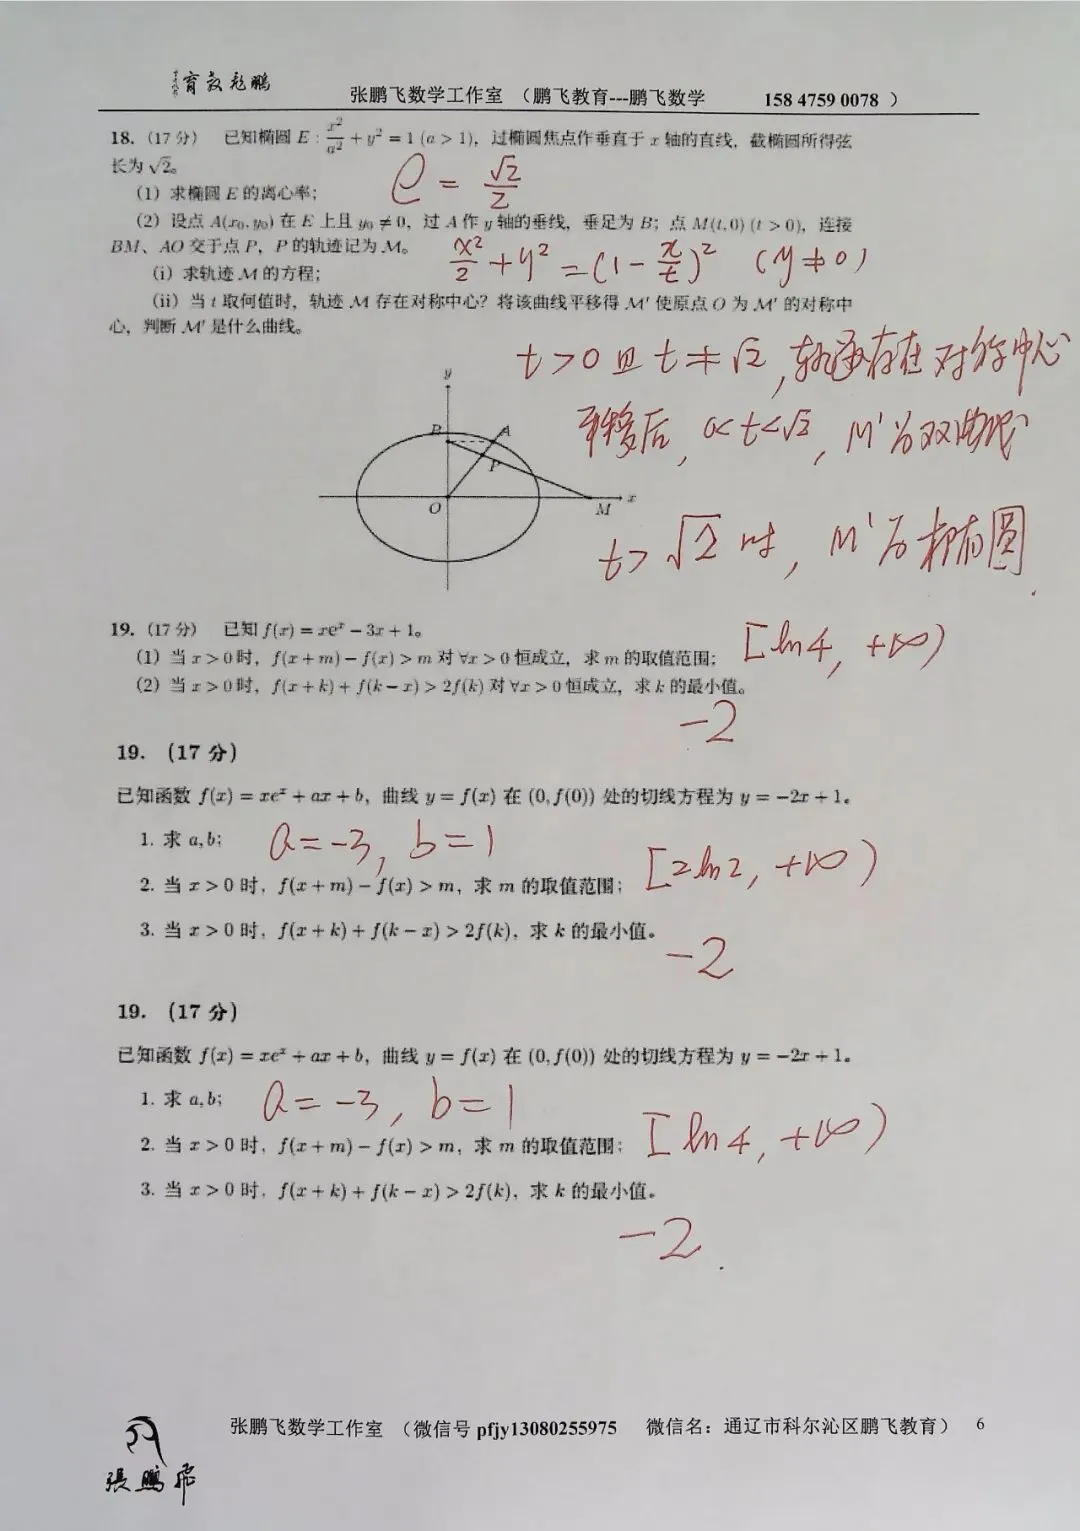 育教飞鹏
张鹏飞数学工作室 （鹏飞教育---鹏飞数学 158 4759 0078 ）
18.（17 分） 已知椭圆 E : x²/a² + y² = 1 (a > 1)，过椭圆焦点作垂直于 x 轴的直线，截椭圆所得弦
长为 √2。
e = √2/2
（1）求椭圆 E 的离心率；
（2）设点 A(x₀, y₀) 在 E 上且 y₀ ≠ 0，过 A 作 y 轴的垂线，垂足为 B；点 M(t, 0) (t > 0)，连接
BM、AO 交于点 P，P 的轨迹记为 M。
x²/2 + y² = (1 - x/t)² (y ≠ 0)
（i）求轨迹 M 的方程；
（ii）当 t 取何值时，轨迹 M 存在对称中心？将该曲线平移得 M′ 使原点 O 为 M′ 的对称中
心，判断 M′ 是什么曲线。
t > 0 且 t ≠ √2, 轨迹存在对称中心
平移后, 0 < t < √2, M' 为双曲线
t > √2 时, M' 为椭圆.
y
B
A
P
O
M
x
19.（17 分） 已知 f(x) = xeˣ − 3x + 1。
（1）当 x > 0 时，f(x + m) − f(x) > m 对 ∀x > 0 恒成立，求 m 的取值范围；
[ln4, +∞)
（2）当 x > 0 时，f(x + k) + f(k − x) > 2f(k) 对 ∀x > 0 恒成立，求 k 的最小值。
-2
19.（17 分）
已知函数 f(x) = xeˣ + ax + b，曲线 y = f(x) 在 (0, f(0)) 处的切线方程为 y = −2x + 1。
1. 求 a, b；
a = -3, b = 1
2. 当 x > 0 时，f(x + m) − f(x) > m，求 m 的取值范围；
[2ln2, +∞)
3. 当 x > 0 时，f(x + k) + f(k − x) > 2f(k)，求 k 的最小值。
-2
19.（17 分）
已知函数 f(x) = xeˣ + ax + b，曲线 y = f(x) 在 (0, f(0)) 处的切线方程为 y = −2x + 1。
1. 求 a, b；
a = -3, b = 1
2. 当 x > 0 时，f(x + m) − f(x) > m，求 m 的取值范围；
[ln4, +∞)
3. 当 x > 0 时，f(x + k) + f(k − x) > 2f(k)，求 k 的最小值。
-2.
張鵬飛
张鹏飞数学工作室 （微信号 pfjy13080255975 微信名：通辽市科尔沁区鹏飞教育） 6